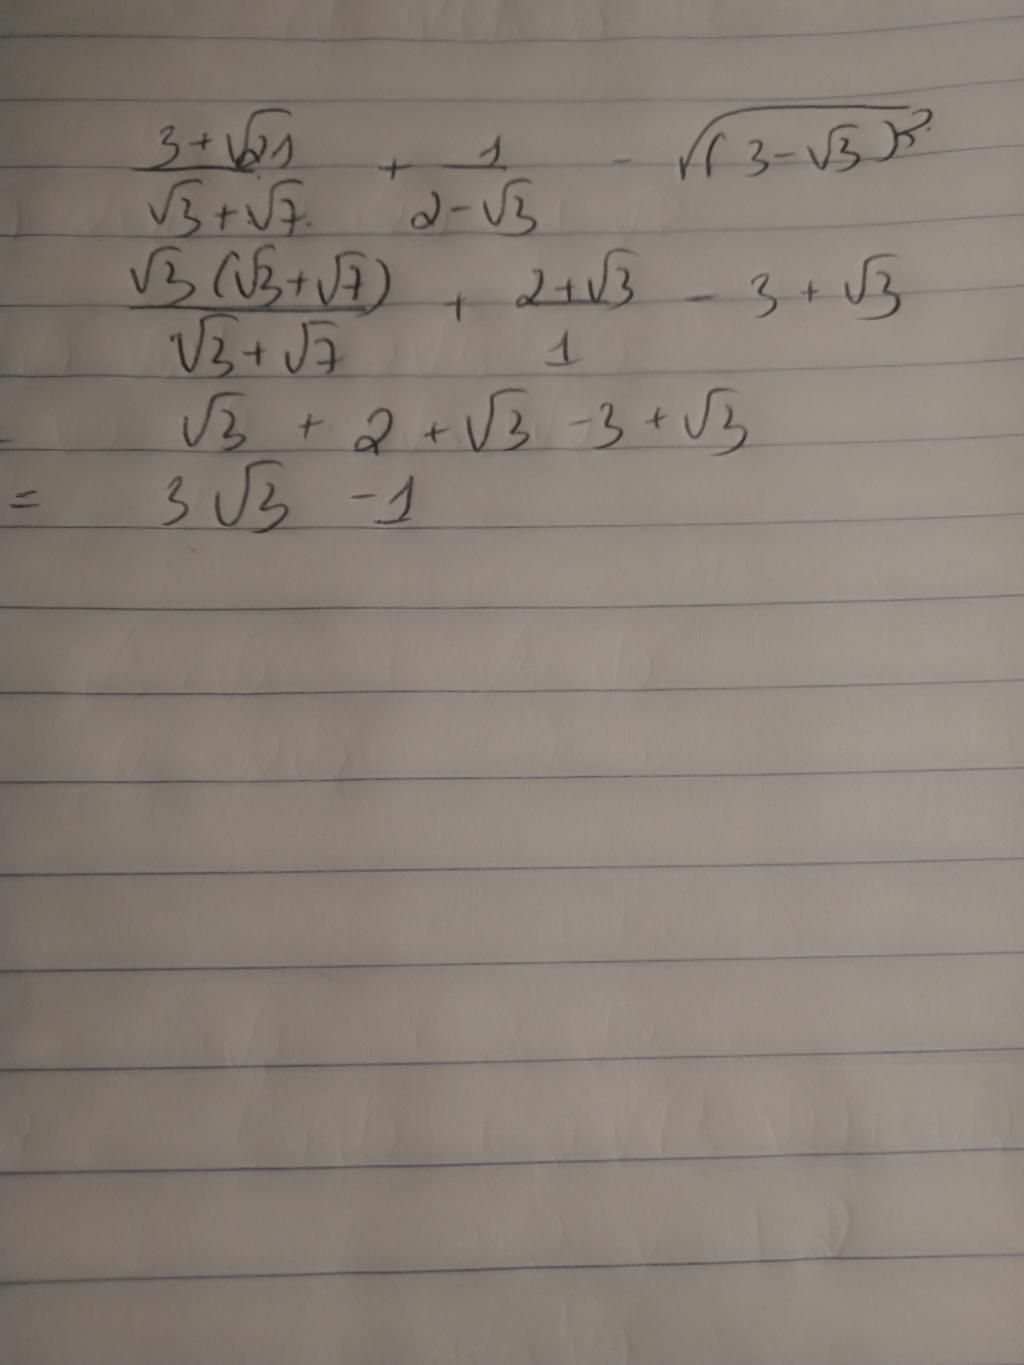 3+√21/√3+√7 + 1/2-√3 - √(3-√3)²
√3(√3+√7)/√3+√7 + 2+√3/1 - 3+√3
√3 + 2+√3 -3+√3
= 3√3 -1